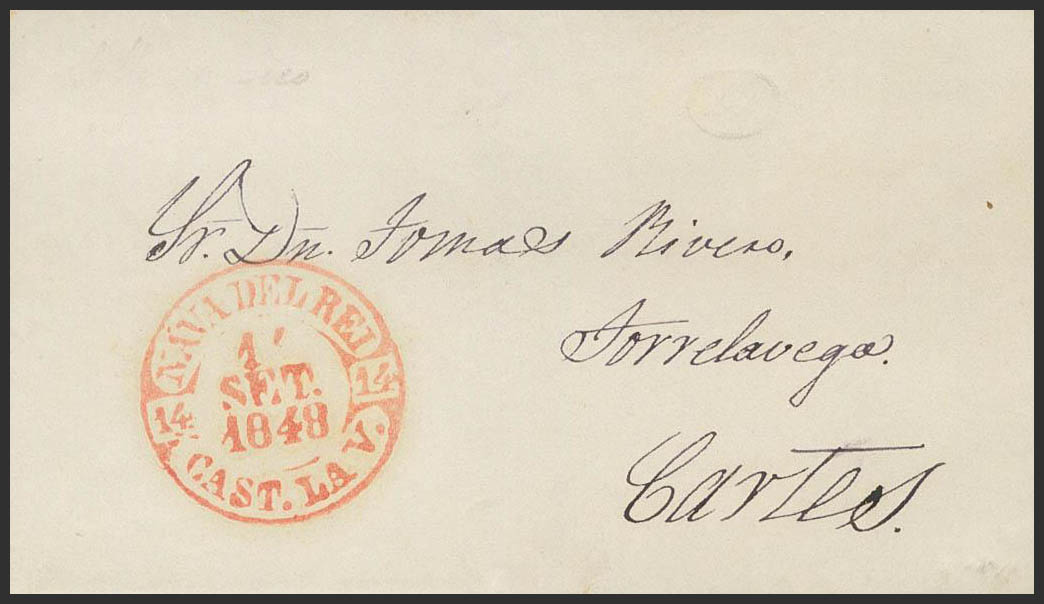 Sr. Dn. Tomas Rivero.
Torrelavega.
Cartes.
NAVA DEL REI
14 14
1
SET.
1848
CAST. LA V.